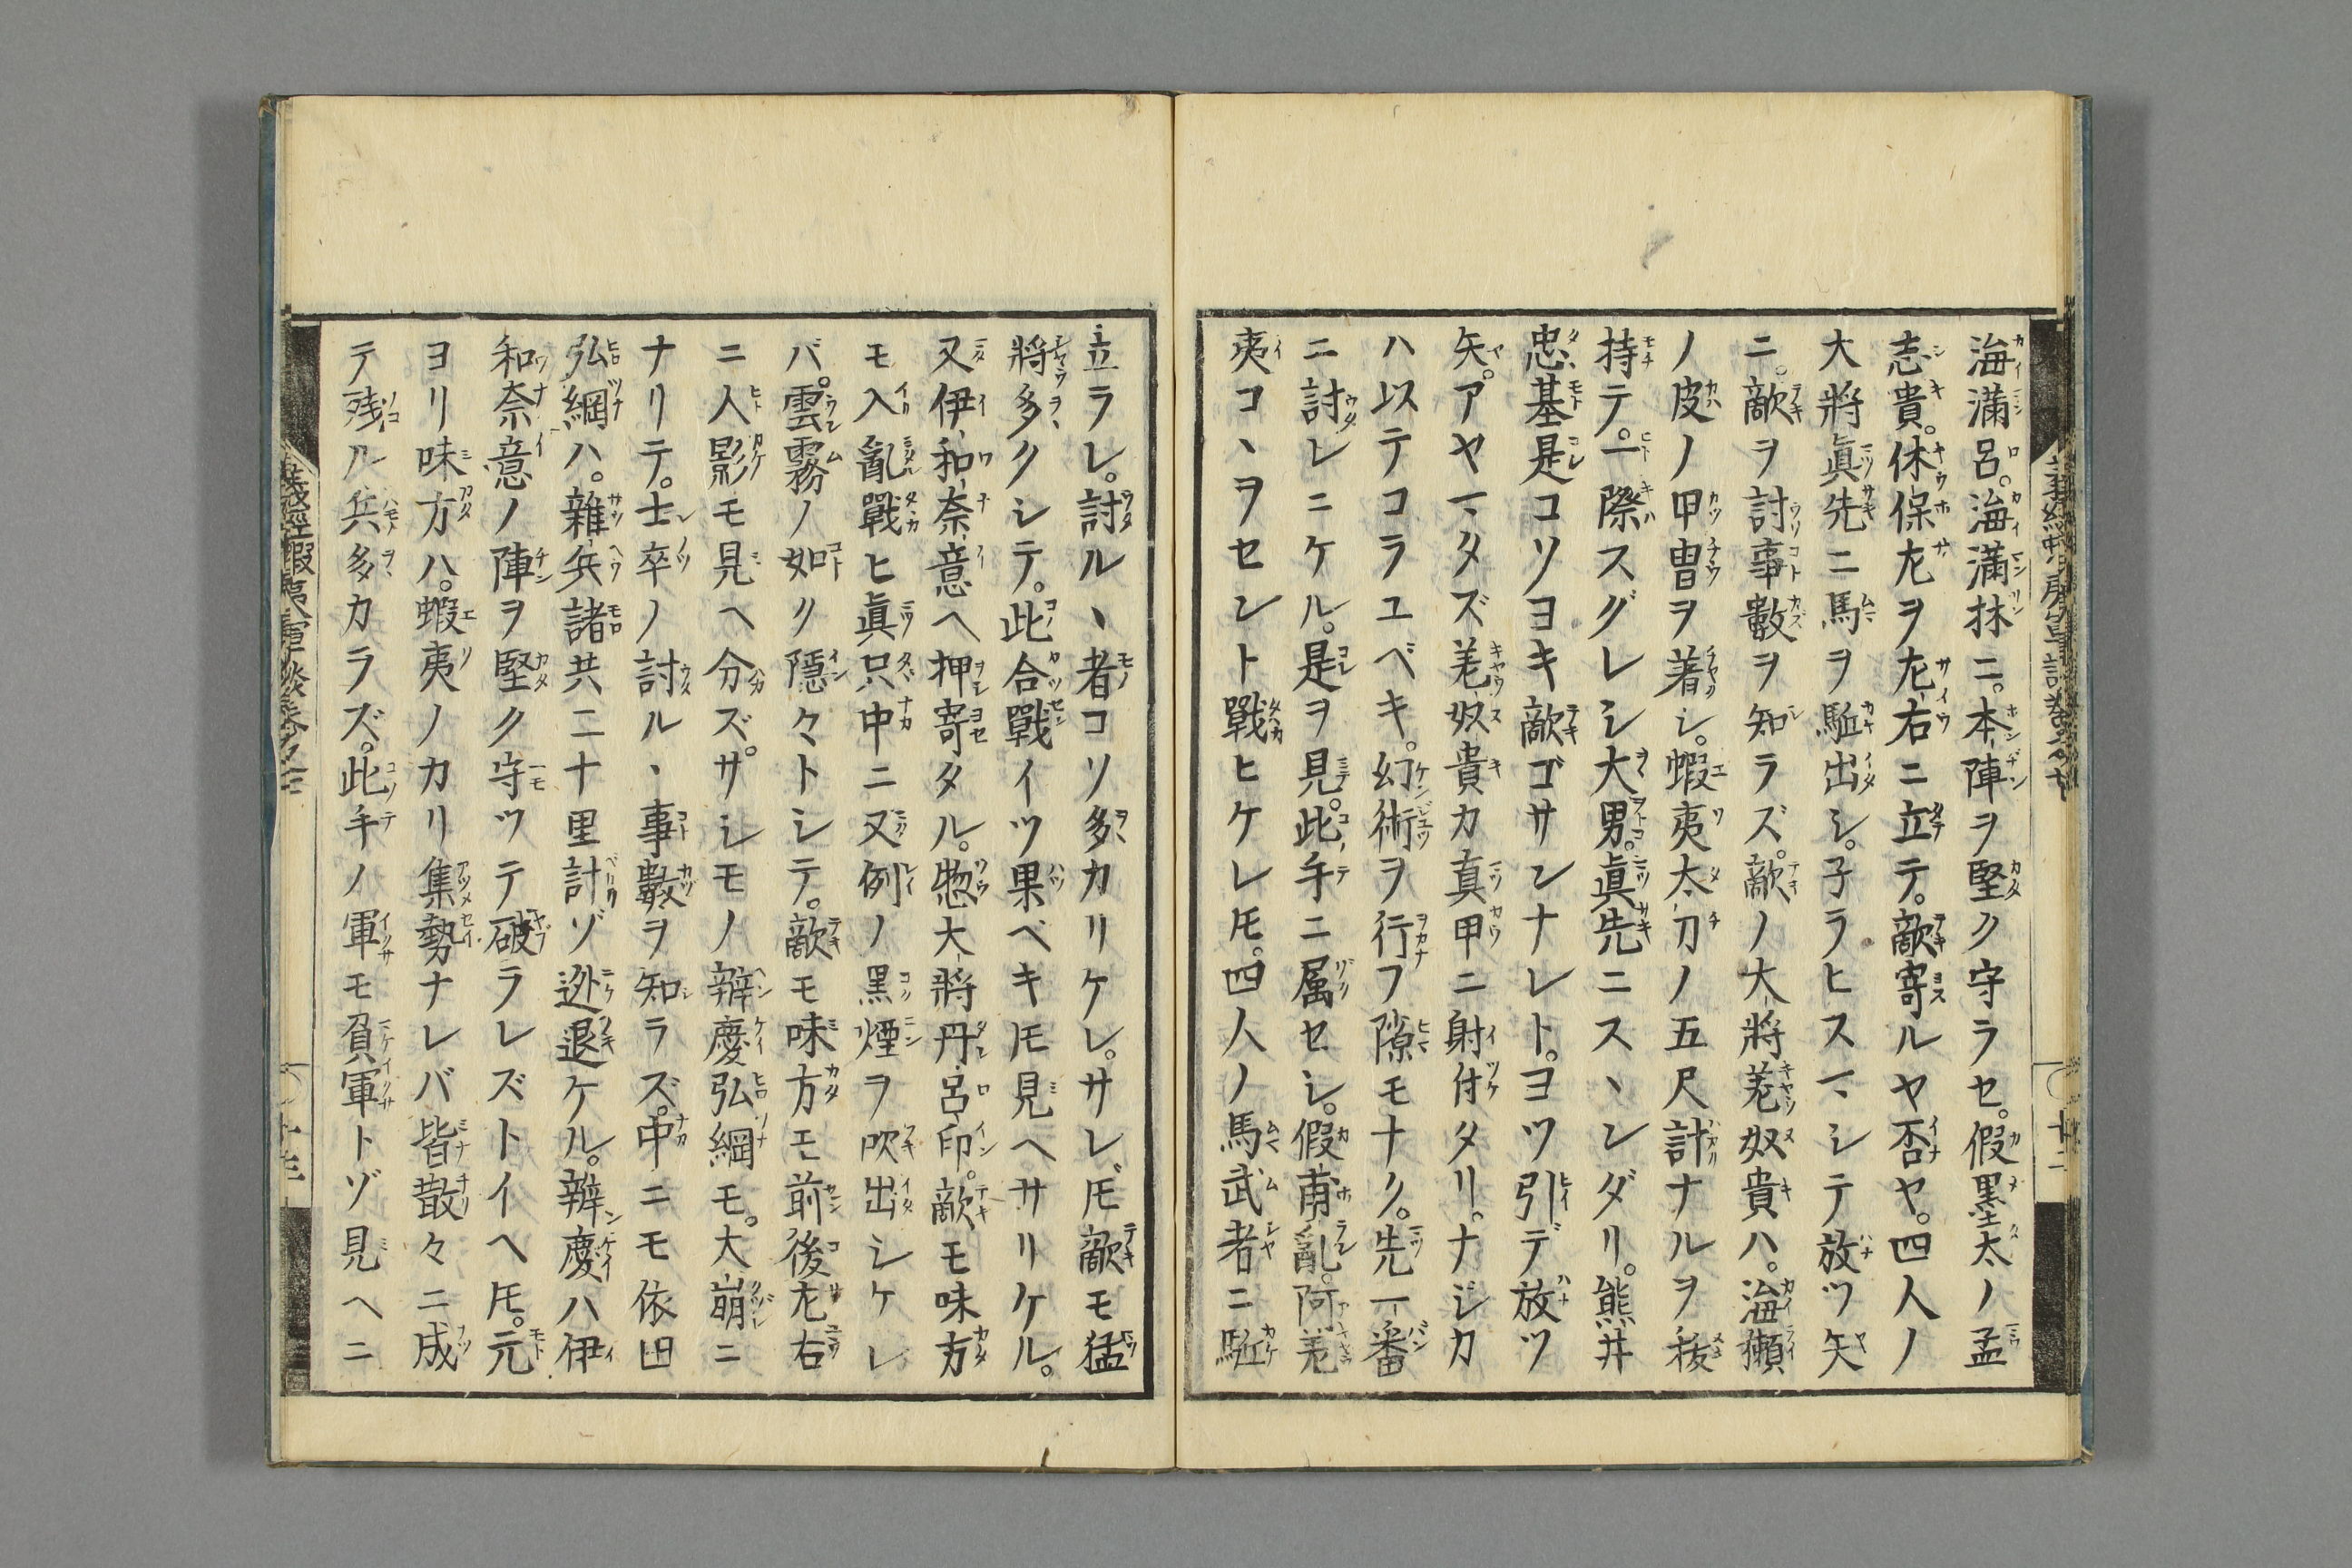 海滿呂。海滿抹ニ。本陣ヲ堅ク守ラセ。假黒太ノ孟
志貴。休保左ヲ左右ニ立テ。敵寄ルヤ否ヤ。四人ノ
大將眞先ニ馬ヲ駈出シ。子ラヒスマシテ放ツ矢
ニ。敵ヲ討事數ヲ知ラズ。敵ノ大將羗奴貴ハ。海獺
ノ皮ノ甲冑ヲ著シ。蝦夷太刀ノ五尺計ナルヲ抜
持テ。一際スグレシ大男。眞先ニスヽンダリ。熊井
忠基是コソヨキ敵ゴサンナレト。ヨツ引デ放ツ
矢。アヤマタズ羗奴貴カ真甲ニ射付タリ。ナジカ
ハ以テコラユベキ。幻術ヲ行フ隙モナク。先一番
ニ討レニケル。是ヲ見。此手ニ属セシ。假甫亂。阿羗
夷コヽヲセント戰ヒケレ𪜈。四人ノ馬武者ニ駈
立ラレ。討ルヽ者コソ多カリケレ。サレ𪜈敵モ猛
將多クシテ。此合戰イツ果ベキ𪜈見ヘサリケル。
又伊和奈意ヘ押寄タル。惣大將丹呂印。敵モ味方
モ入亂戰ヒ眞只中ニ又例ノ黒煙ヲ吹出シケレ
バ。雲霧ノ如ク隱々トシテ。敵モ味方モ前後左右
ニ人影モ見ヘ分ズ。サシモノ辨慶弘綱モ。大崩ニ
ナリテ。士卒ノ討ルヽ事數ヲ知ラズ。中ニモ依田
弘綱ハ。雜兵諸共ニ十里計ゾ迯退ケル。辨慶ハ伊
和奈意ノ陣ヲ堅ク守ツテ破ラレズトイヘ𪜈。元
ヨリ味方ハ。蝦夷ノカリ集勢ナレバ皆散々ニ成
テ残ル兵多カラズ。此手ノ軍モ負軍トゾ見ヘニ